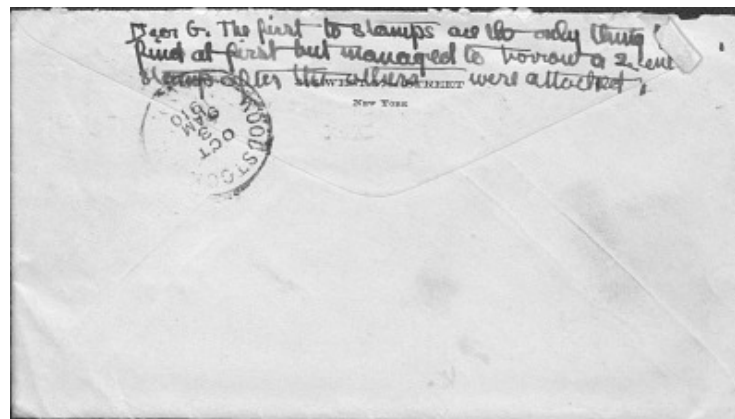 Dear G. The first to stamps are the only thing I
find at first but managed to borrow a 2 cent
stamp after the others were attached,
STREET
New York
WOODSTOCK
OCT
3
AM
1910